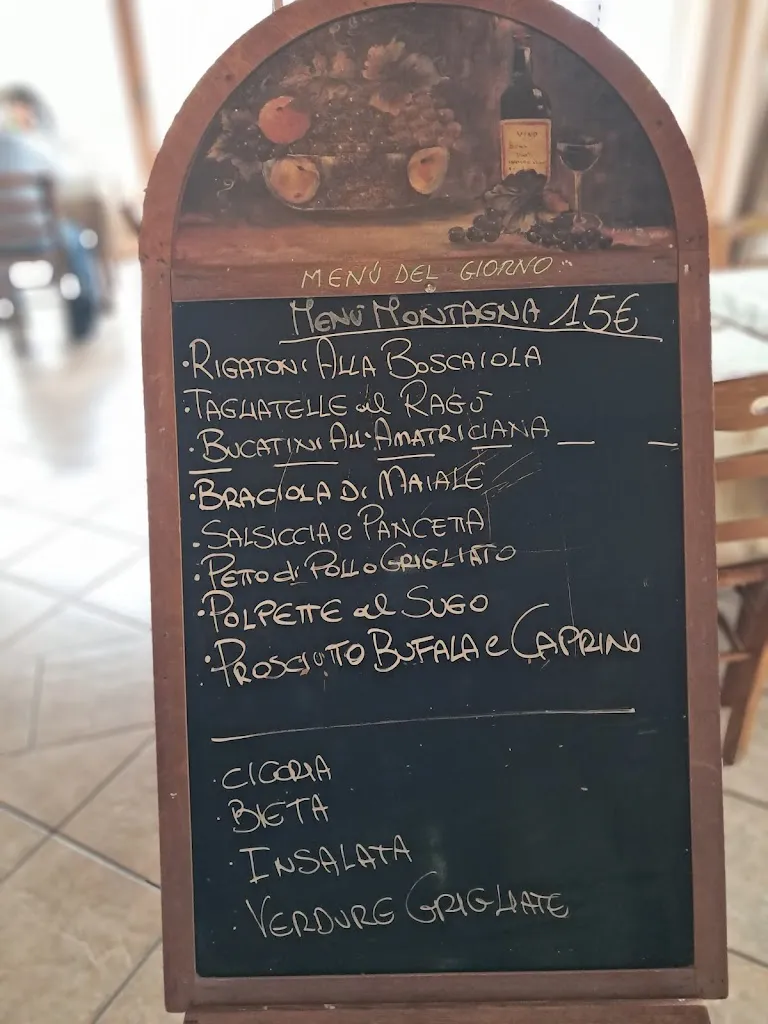 VINO
MENÙ DEL GIORNO
MENÙ MONTAGNA 15€
·RIGATONI ALLA BOSCAIOLA
·TAGLIATELLE al RAGÙ
·BUCATINI ALL'AMATRICIANA
·BRACIOLA Di MAIALE
·SALSICCIA e PANCETTA
·PETTO di POLLO GRIGLIATO
·POLPETTE al SUGO
·PROSCIUTTO BUFALA e CAPRINO
·CICORIA
·BIETA
·INSALATA
·VERDURE GRIGLIATE